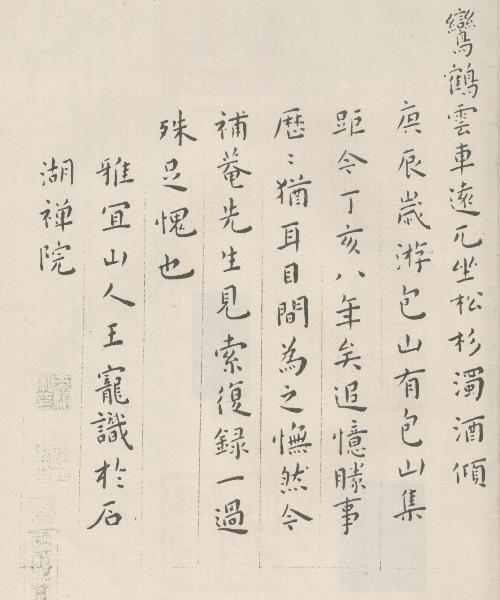 鸞鶴雲車遠兀坐松杉濁酒傾
庚辰歲游包山有包山集
距今丁亥八年矣追憶勝事
歷〻猶耳目間為之憮然今
補菴先生見索復錄一過
殊足愧也
雅宜山人王寵識於石
湖禪院